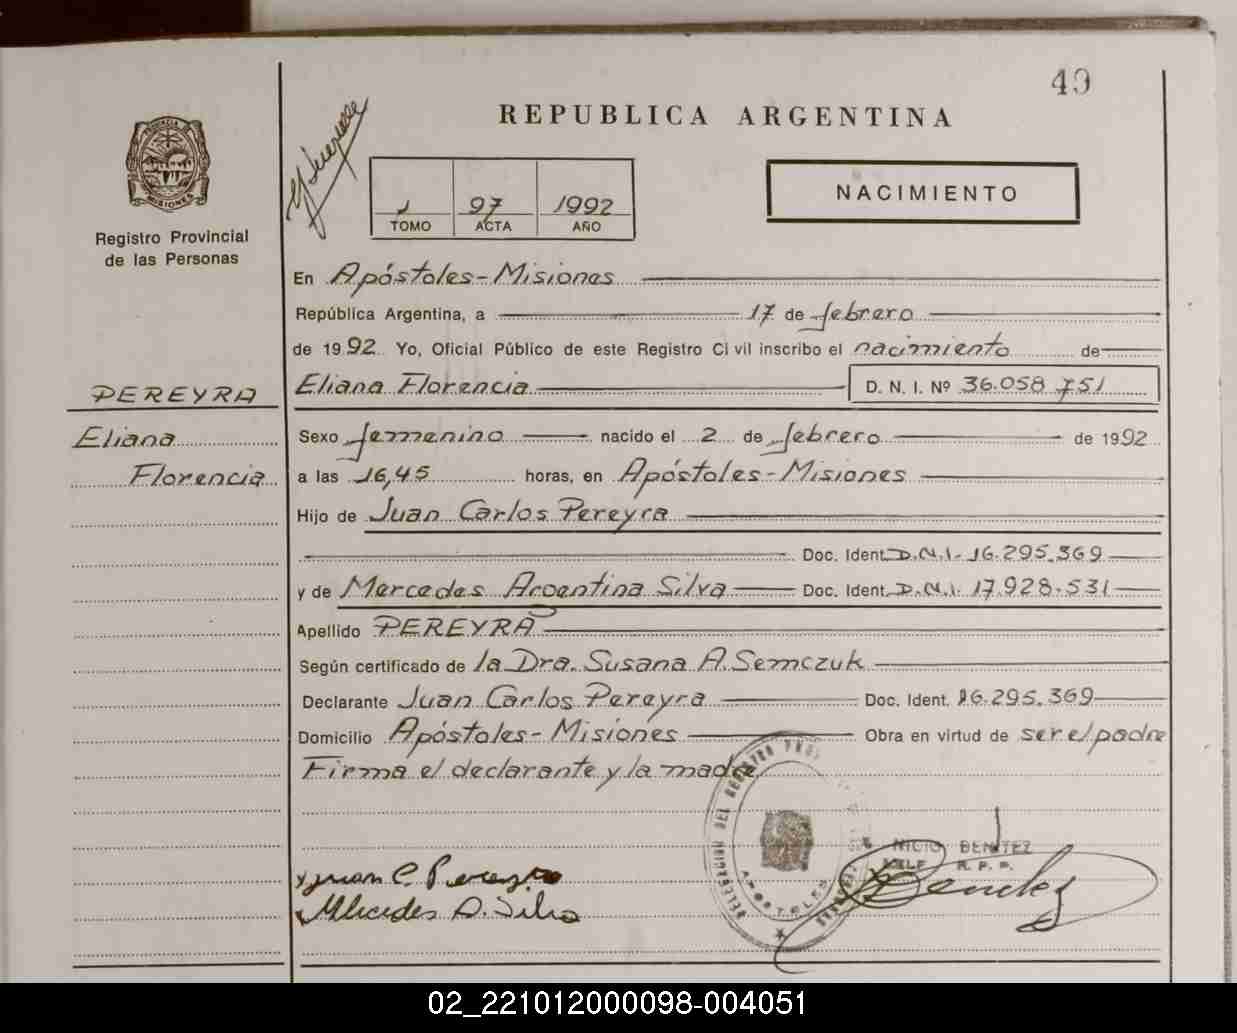 49
REPUBLICA ARGENTINA
PROVINCIA DE
MISIONES
Registro Provincial
de las Personas
1 97 1992
TOMO ACTA AÑO
NACIMIENTO
En Apóstoles-Misiones
República Argentina, a 17 de febrero
de 1992 Yo, Oficial Público de este Registro Civil inscribo el nacimiento de
Eliana Florencia D. N. I. Nº 36.058.751
PEREYRA
Eliana
Florencia
Sexo femenino nacido el 2 de febrero de 1992
a las 16,45 horas, en Apóstoles-Misiones
Hijo de Juan Carlos Pereyra
Doc. Ident. D.N.I. 16.295.369
y de Mercedes Argentina Silva Doc. Ident. D.N.I. 17.928.531
Apellido PEREYRA
Según certificado de la Dra. Susana A. Semczuk
Declarante Juan Carlos Pereyra Doc. Ident. 16.295.369
Domicilio Apóstoles-Misiones Obra en virtud de ser el padre
Firma el declarante y la madre
DELEGACION DEL REGISTRO
APOSTOLES
Juan C. Pereyra
Mercedes A. Silva
NICIO BENITEZ
R. P. P.
Benitez
02_221012000098-004051